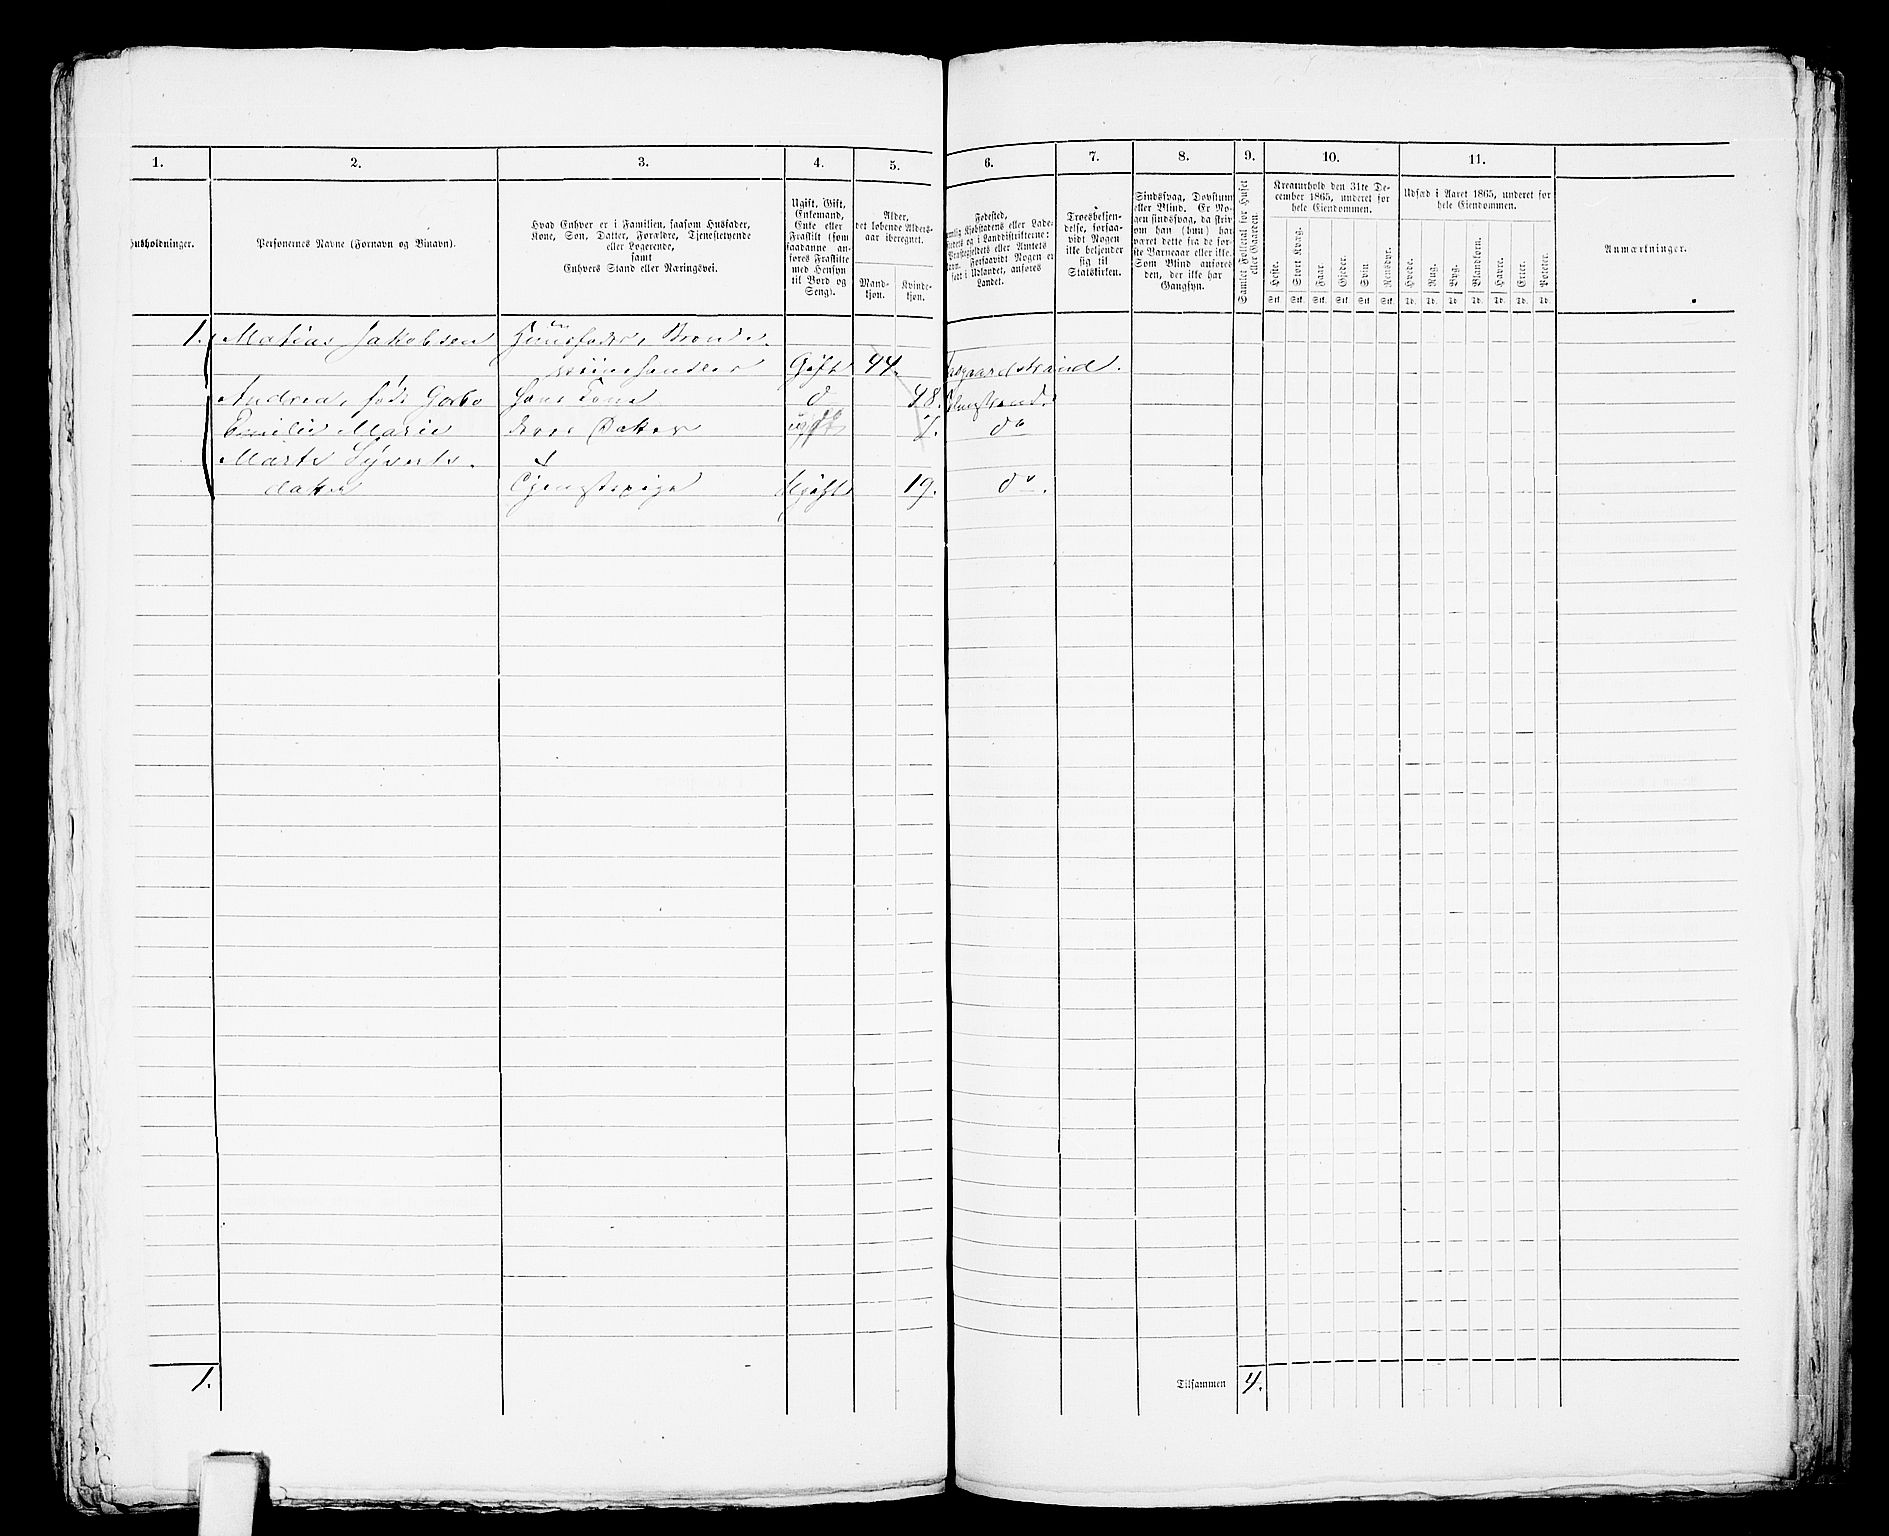 1. 2. 3. 4. 5. 6. 7. 8. 9. 10. 11.
Husholdninger.
Personernes Navne (Fornavn og Binavn).
Hvad Enhver er i Familien, saasom Husfader,
Kone, Søn, Datter, Forældre, Tjenestetyende
eller Logerende,
samt
Enhvers Stand eller Næringsvei.
Ugift, Gift,
Enkemand,
Enke eller
Fraskilt (som
saadanne an-
føres Fraskilte
med Hensyn
til Bord og
Seng).
Alder,
det løbende Alders-
aar iberegnet.
Mand-
kjøn.
Kvinde-
kjøn.
Fødested,
nemlig Kjøbstadens eller Lade-
stedets og i Landdistrikterne:
Præstegjeldets eller Amtets
Navn. Forsaavidt Nogen er
født i Udlandet, anføres
Landet.
Troesbekjen-
delse, forsaa-
vidt Nogen
ikke bekjender
sig til
Statskirken.
Sindssvag, Døvstum
eller Blind. Er No-
gen sindssvag, da skriv
om han (hun) har
været dette fra de før-
ste Barneaar eller ikke.
Som Blind anføres
den, der ikke har
Gangsyn.
Samlet Folketal for Huset
eller Gaarden.
Kreaturhold den 31te De-
cember 1865, underet for
hele Eiendommen.
Heste. Stort Kvæg. Faar. Gjeder. Svin. Rensdyr.
Stk. Stk. Stk. Stk. Stk. Stk.
Udsæd i Aaret 1865, underet for
hele Eiendommen.
Hvede. Rug. Byg. Blandkorn. Havre. Erter. Poteter.
Td. Td. Td. Td. Td. Td. Td.
Anmærkninger.
1. Matias Jakobsen Huusfader, Brend-
viinshandler Gift 44. Aasgaardstrand.
Andrea, født Gorbo Hans Kone do 48.
Emilie Marie deres Datter ugift 7. do
Marte Syverts-
datter Tjenestepige Ugift 19. do.
1. Tilsammen 4.